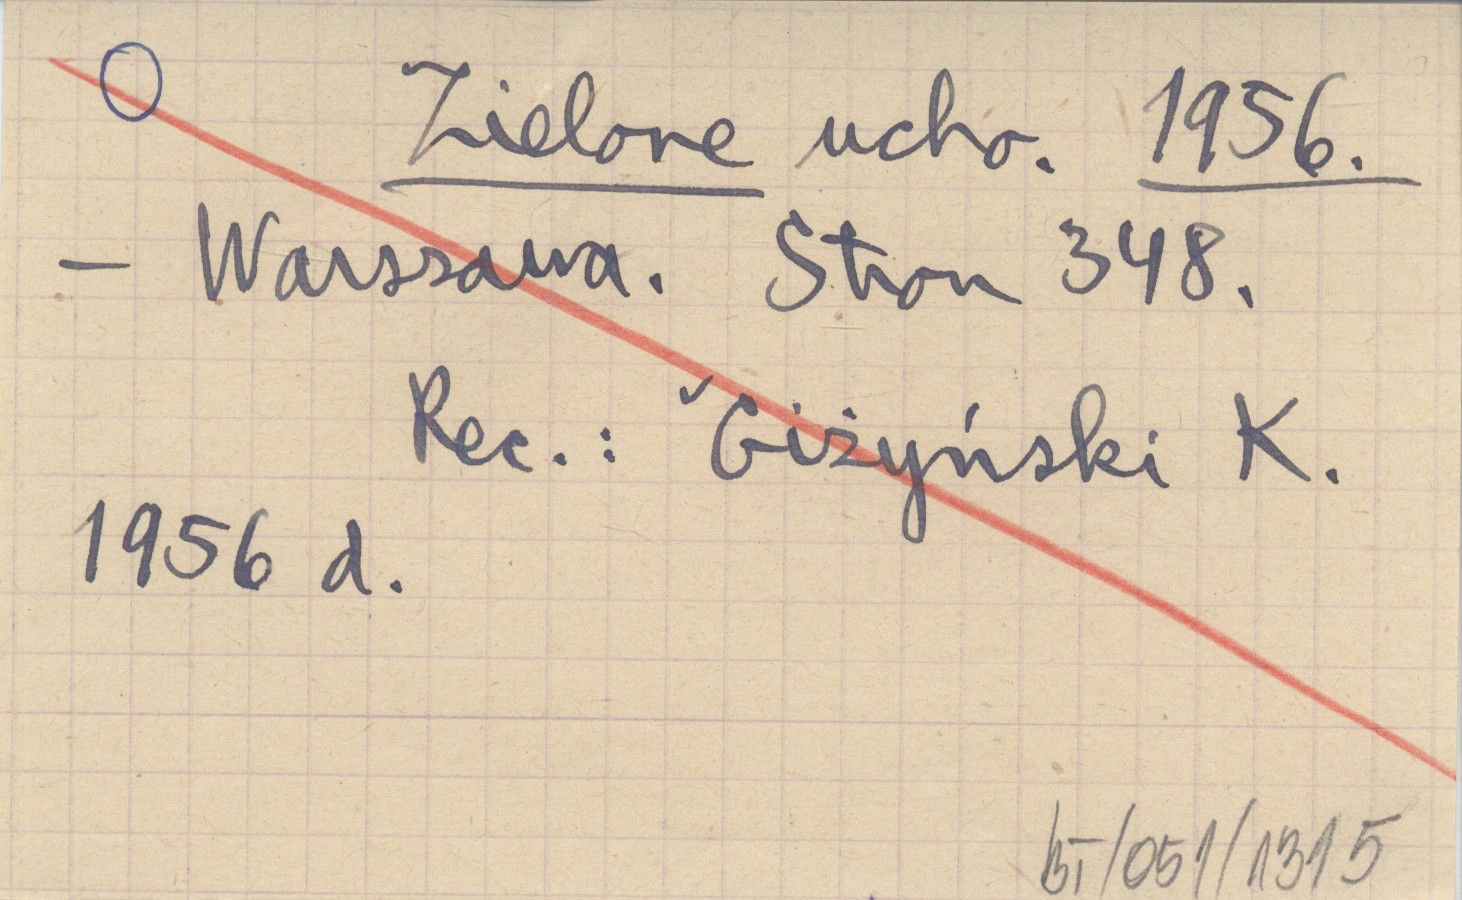 Zielone ucho. 1956.
– Warszawa. Stron 348.
Rec.: ˇGiżyński K.
1956 d.
BI/051/1315